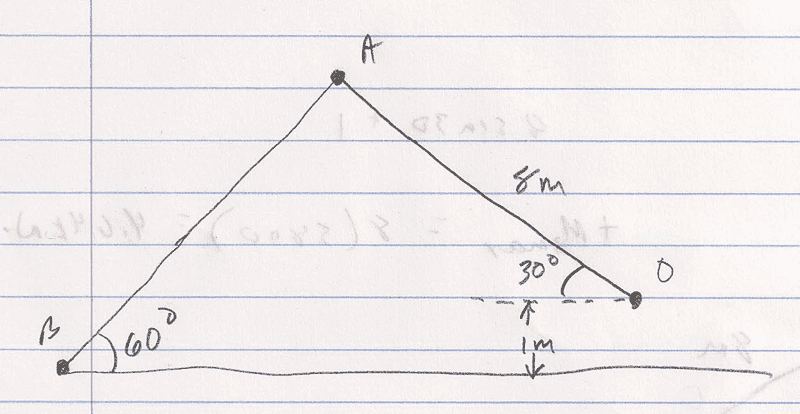 A
8m
30° O
1m
B 60°